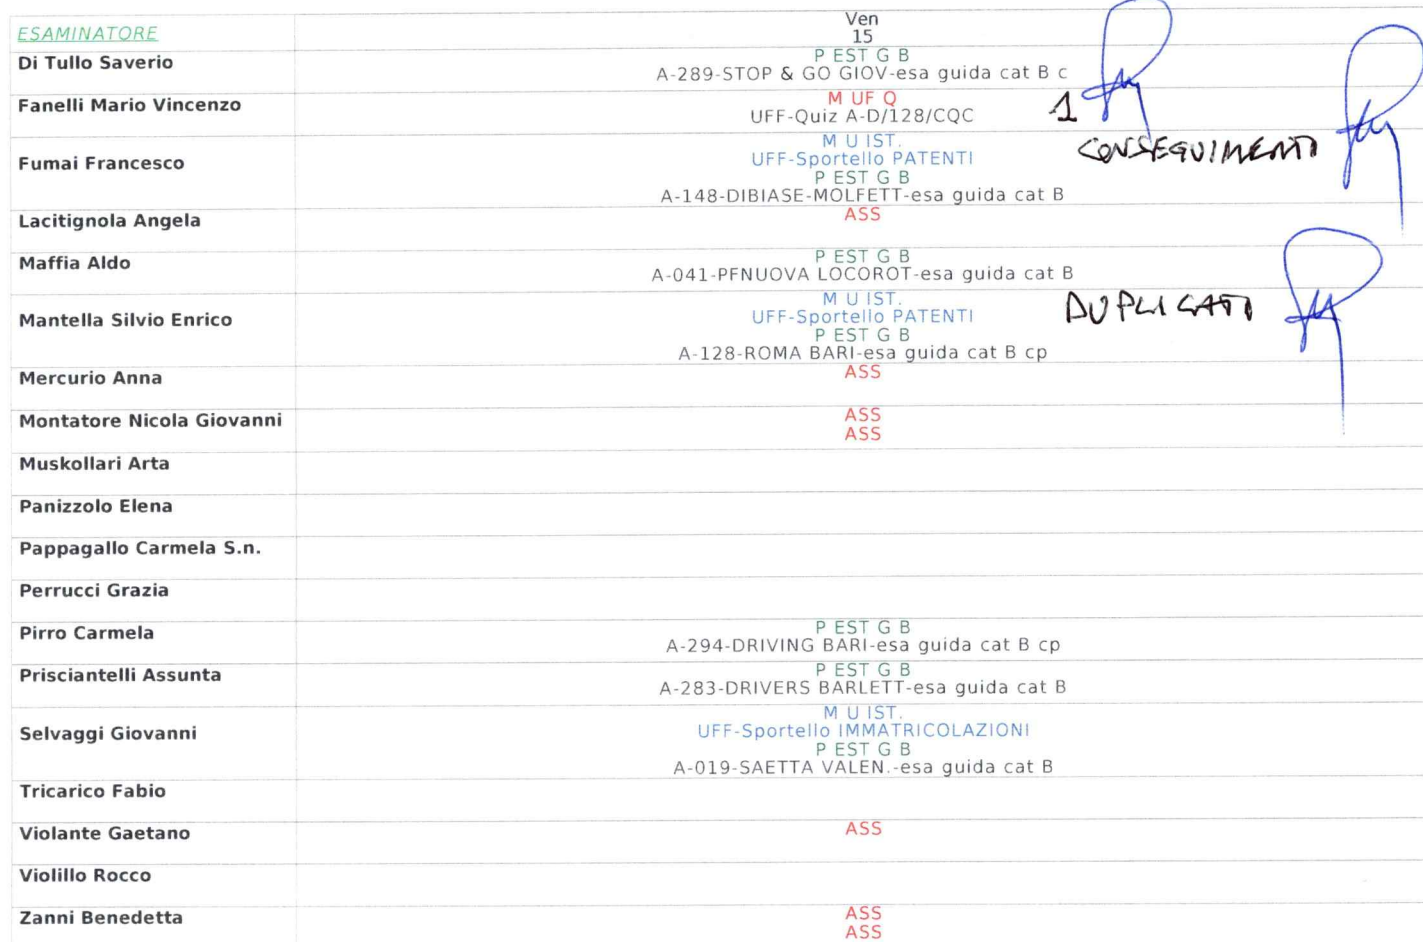 ESAMINATORE
Ven
15
Di Tullo Saverio
P EST G B
A-289-STOP & GO GIOV-esa guida cat B c
Fanelli Mario Vincenzo
M UF Q
UFF-Quiz A-D/128/CQC
1
Fumai Francesco
M U IST.
UFF-Sportello PATENTI
CONSEGUIMENTI
P EST G B
A-148-DIBIASE-MOLFETT-esa guida cat B
Lacitignola Angela
ASS
Maffia Aldo
P EST G B
A-041-PFNUOVA LOCOROT-esa guida cat B
Mantella Silvio Enrico
M U IST.
UFF-Sportello PATENTI
DUPLICATI
P EST G B
A-128-ROMA BARI-esa guida cat B cp
Mercurio Anna
ASS
Montatore Nicola Giovanni
ASS
ASS
Muskollari Arta
Panizzolo Elena
Pappagallo Carmela S.n.
Perrucci Grazia
Pirro Carmela
P EST G B
A-294-DRIVING BARI-esa guida cat B cp
Prisciantelli Assunta
P EST G B
A-283-DRIVERS BARLETT-esa guida cat B
Selvaggi Giovanni
M U IST.
UFF-Sportello IMMATRICOLAZIONI
P EST G B
A-019-SAETTA VALEN.-esa guida cat B
Tricarico Fabio
Violante Gaetano
ASS
Violillo Rocco
Zanni Benedetta
ASS
ASS